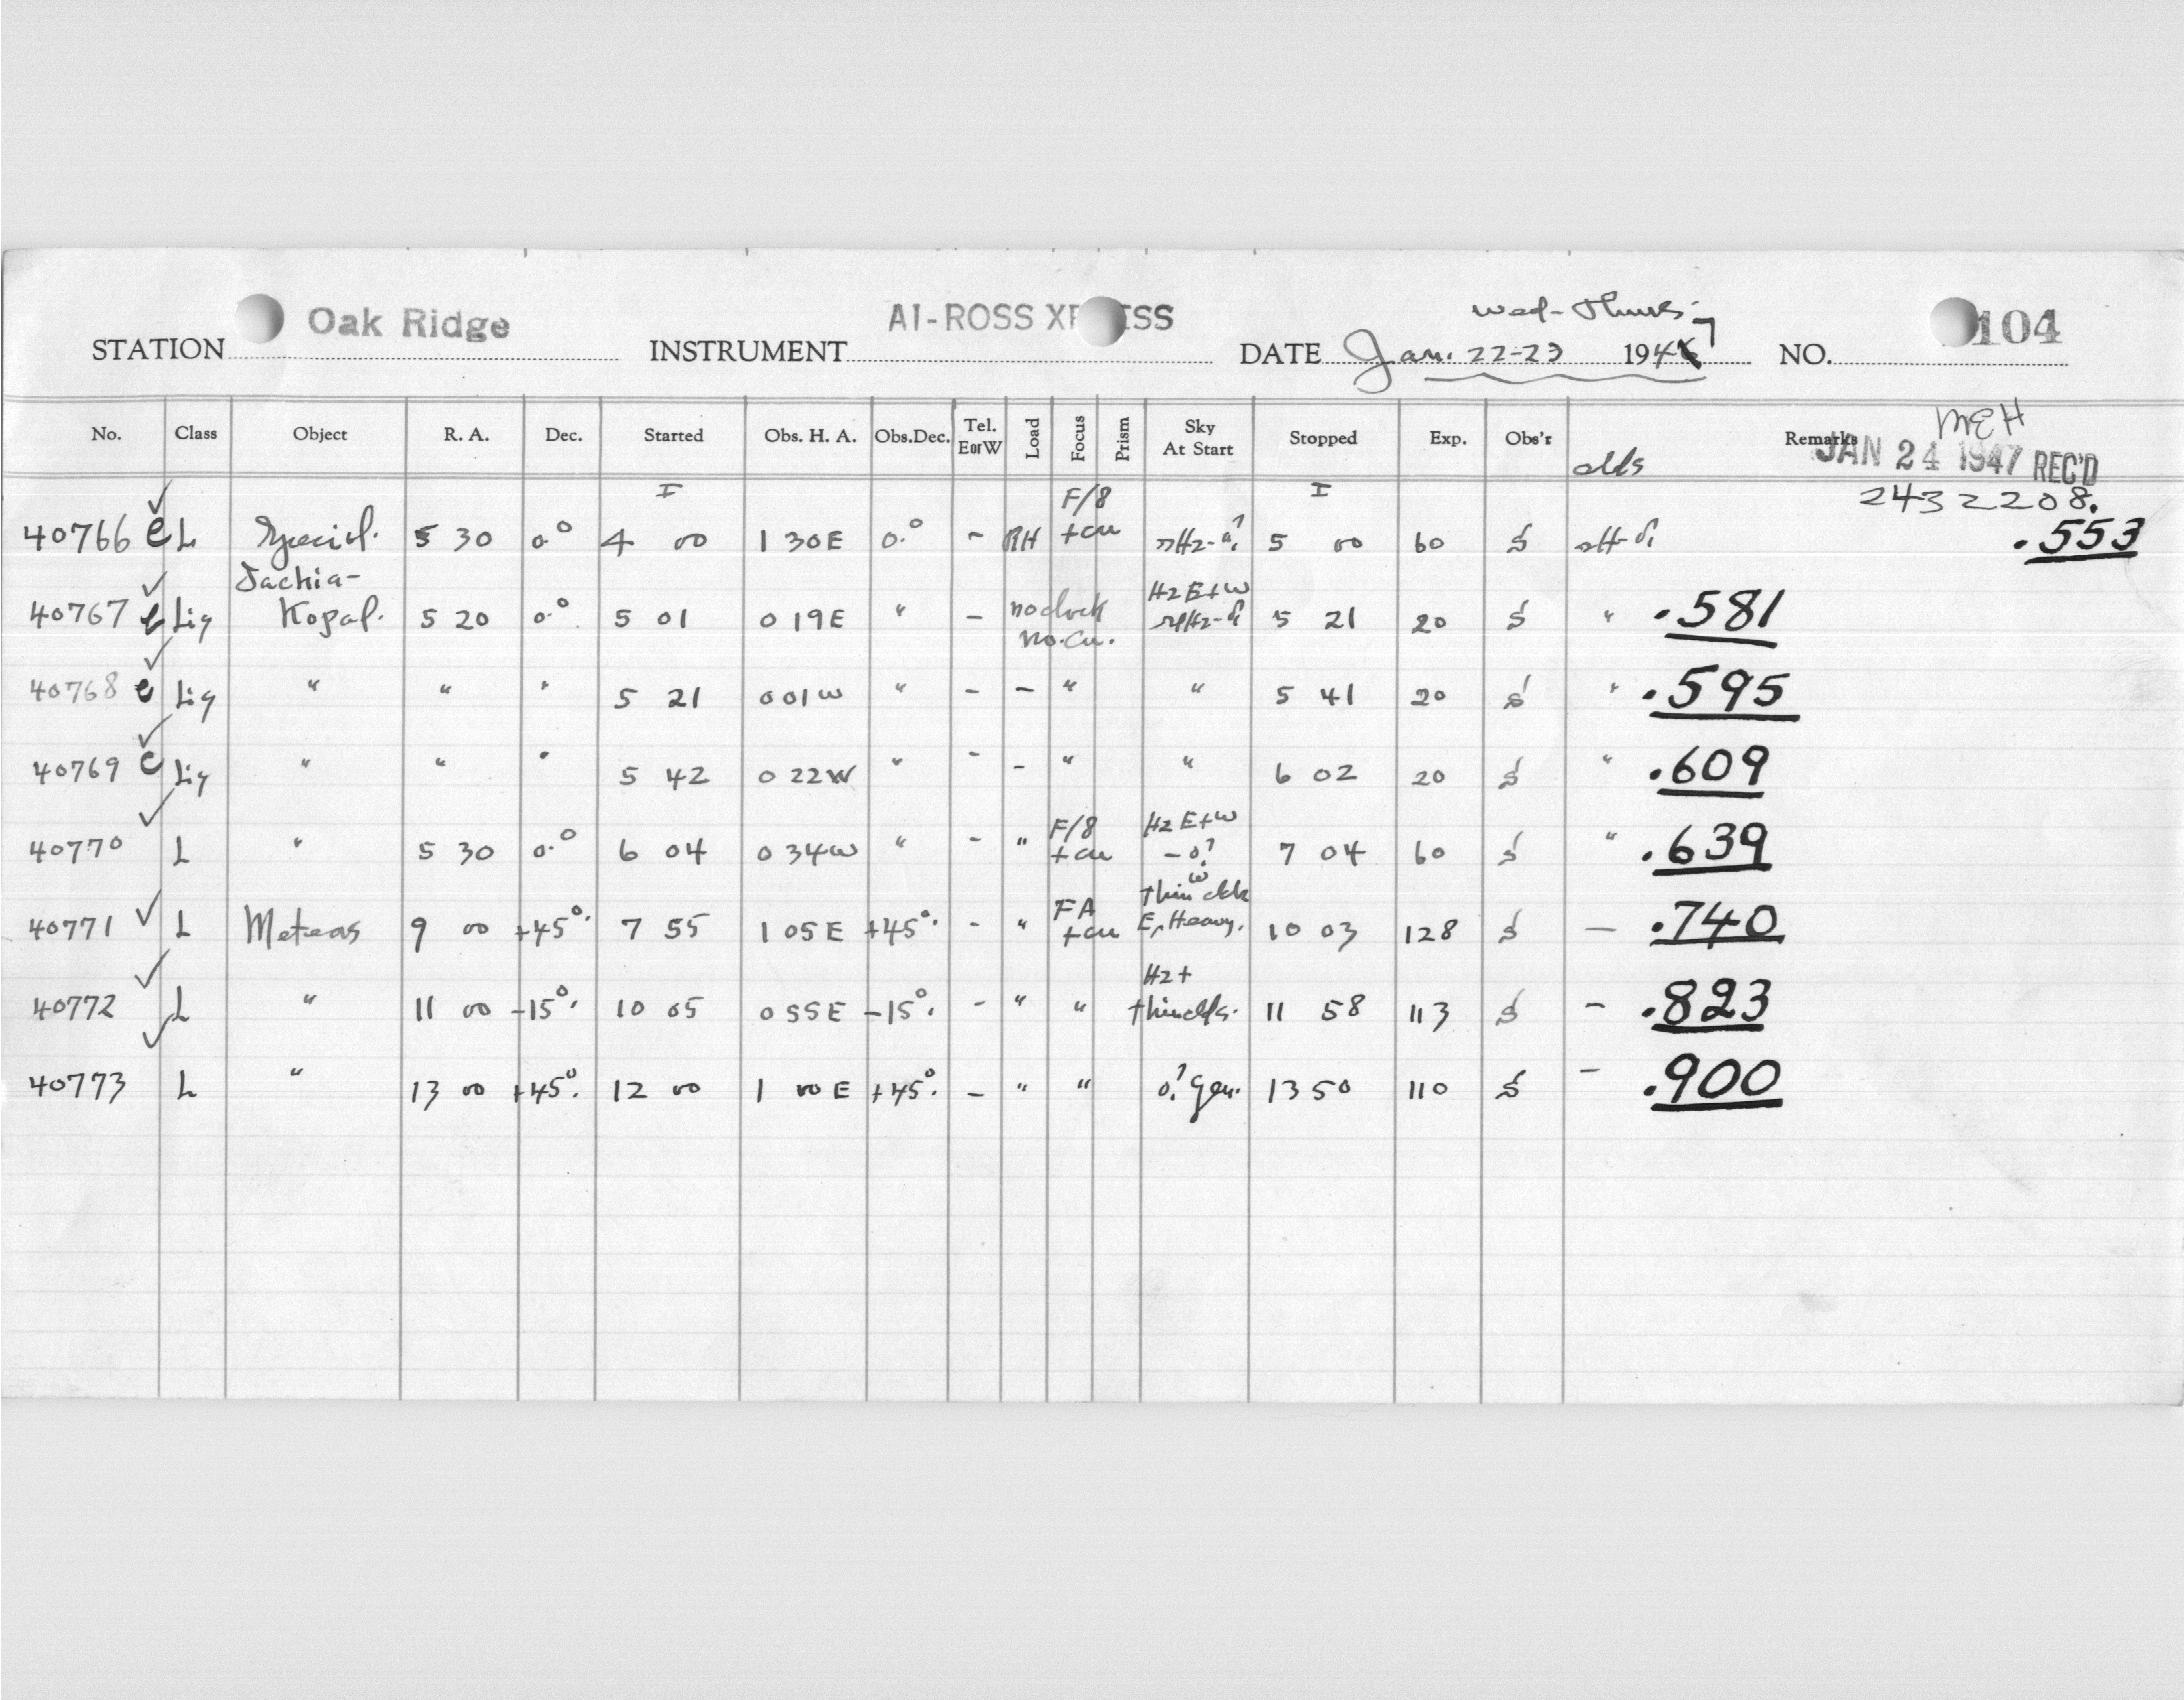 Wed-Thurs.
STATION Oak Ridge INSTRUMENT AI-ROSS XPRESS DATE Jan. 22-23 1947 NO. 104
No. Class Object R. A. Dec. Started Obs. H. A. Obs.Dec. Tel. E or W Load Focus Prism Sky At Start Stopped Exp. Obs'r Remarks
MEH
JAN 24 1947 REC'D
2432208.
40766 e L Special. 5 30 0.° 4 00 1 30E 0.° - RH F/8 + cu 5 00 60 S .553
40767 e Lig Jachia-Kopal. 5 20 0.° 5 01 0 19E " - no clock no.cu. Hz E+W 5 21 20 S " .581
40768 e Lig " " " 5 21 0 01W " - - " " 5 41 20 S " .595
40769 e Lig " " " 5 42 0 22W " - - " " 6 02 20 S " .609
40770 L " 5 30 0.° 6 04 0 34W " - " F/8 + cu Hz E+W 7 04 60 S " .639
40771 L Meteors 9 00 +45°. 7 55 1 05E +45°. - " FA + cu thin W E, Heavy. 10 03 128 S - .740
40772 L " 11 00 -15°. 10 05 0 55E -15°. - " " Hz + thin clds. 11 58 113 S - .823
40773 L " 13 00 +45°. 12 00 1 00E +45°. - " " 13 50 110 S - .900